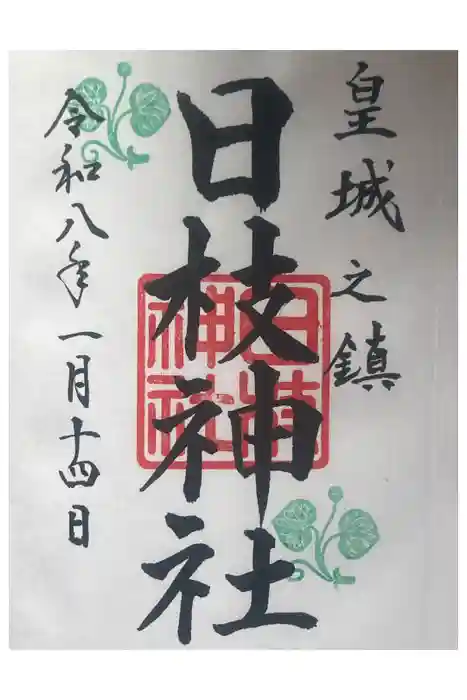 皇城之鎮
日枝神社
日枝神社
令和八年一月十四日